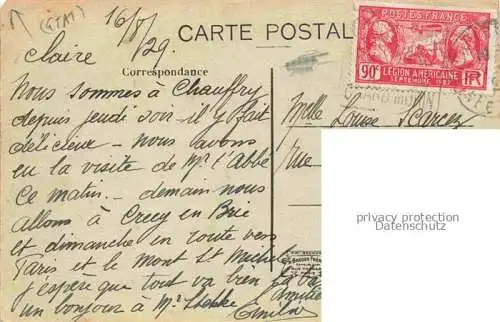 (GTM)
16/8/29.
CARTE POSTAL
Claire
Correspondance
POSTES FRANCE
90c LÉGION AMÉRICAINE RF
SEPTEMBRE 1927
Nous sommes à Chauffry
depuis jeudi soir - il y fait
délicieux - nous avons
eu la visite de Mr l'Abbé
ce matin - demain nous
allons à Crecy en Brie
et dimanche en route vers
Paris et le Mont St Michel
j'espère que tout va bien
un bonjour à Mr
Melle Louise
Rue
privacy protection
Datenschutz